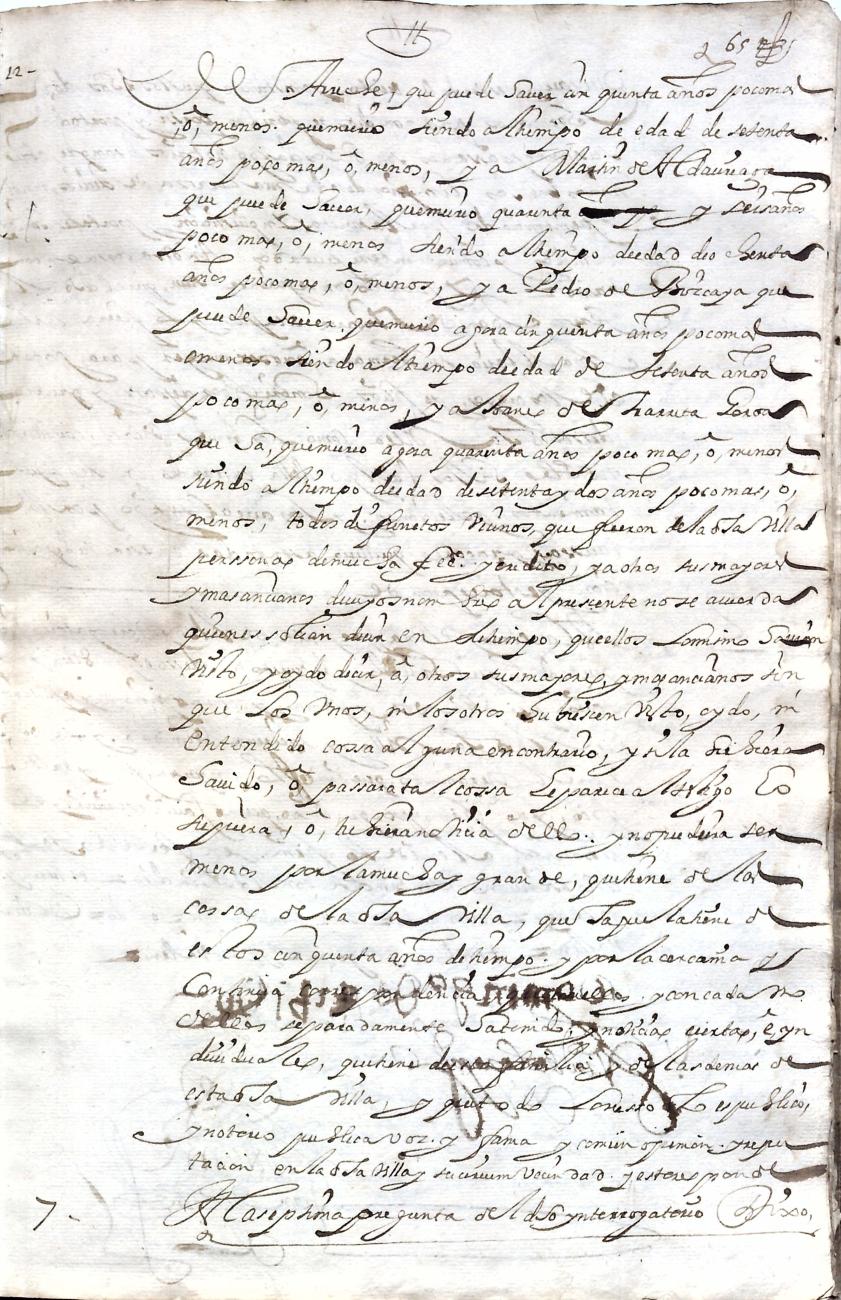 11
265
12-
que puede haver cinquenta años poco mas
, ô, menos. que murio siendo al tiempo de edad de setenta
años poco mas, ô, menos, y a Martin de
que puede haver, que murio quarenta y seis años
poco mas, ô, menos siendo al tiempo de edad de ochenta
años poco mas, ô, menos, y a Pedro de Vizcaya que
puede haver que murio agora cinquenta años poco mas
o menos siendo al tiempo de edad de setenta años
poco mas, ô, menos, y a Joanes de
que ha, que murio agora quarenta años poco mas, ô, menos
siendo al tiempo de edad de setenta y dos años poco mas, ô,
menos, todos defuntos vecinos, que fueron de la dha villa
perssonas de mucha fee. y credito, y a otros sus mayores
y mas ancianos de cuyos nombres al presente no se acuerda
quienes solian decir en su tiempo, que ellos lo mismo havian
visto, y oydo decir, â, otros sus mayores, y mas ancianos sin
que los unos, ni los otros hubiesen visto, oydo, ni
entendido cossa alguna en contrario, y si la hubiera
havido, ô, passara tal cossa le parece al testigo lo
supiera, ô, tubiera noticia dello. y no pudiera ser
menos por la mucha y grande, que tiene de las
cossas de la dha villa, que la tiene de
estos cinquenta años de tiempo. y por la cercania y
continua correspondencia que con ellos. y con cada uno
dellos separadamente ha tenido, y noticias ciertas, ê, yn
dividuales, que tiene de esta familia y de las demas de
esta dha villa, y que todo lo es publico,
y notorio publica voz. y fama y comun opinion. y repu
tacion en la dha villa y su circumvecindad. y esto responde
7. A la septima pregunta del dho ynterrogatorio Dixo,